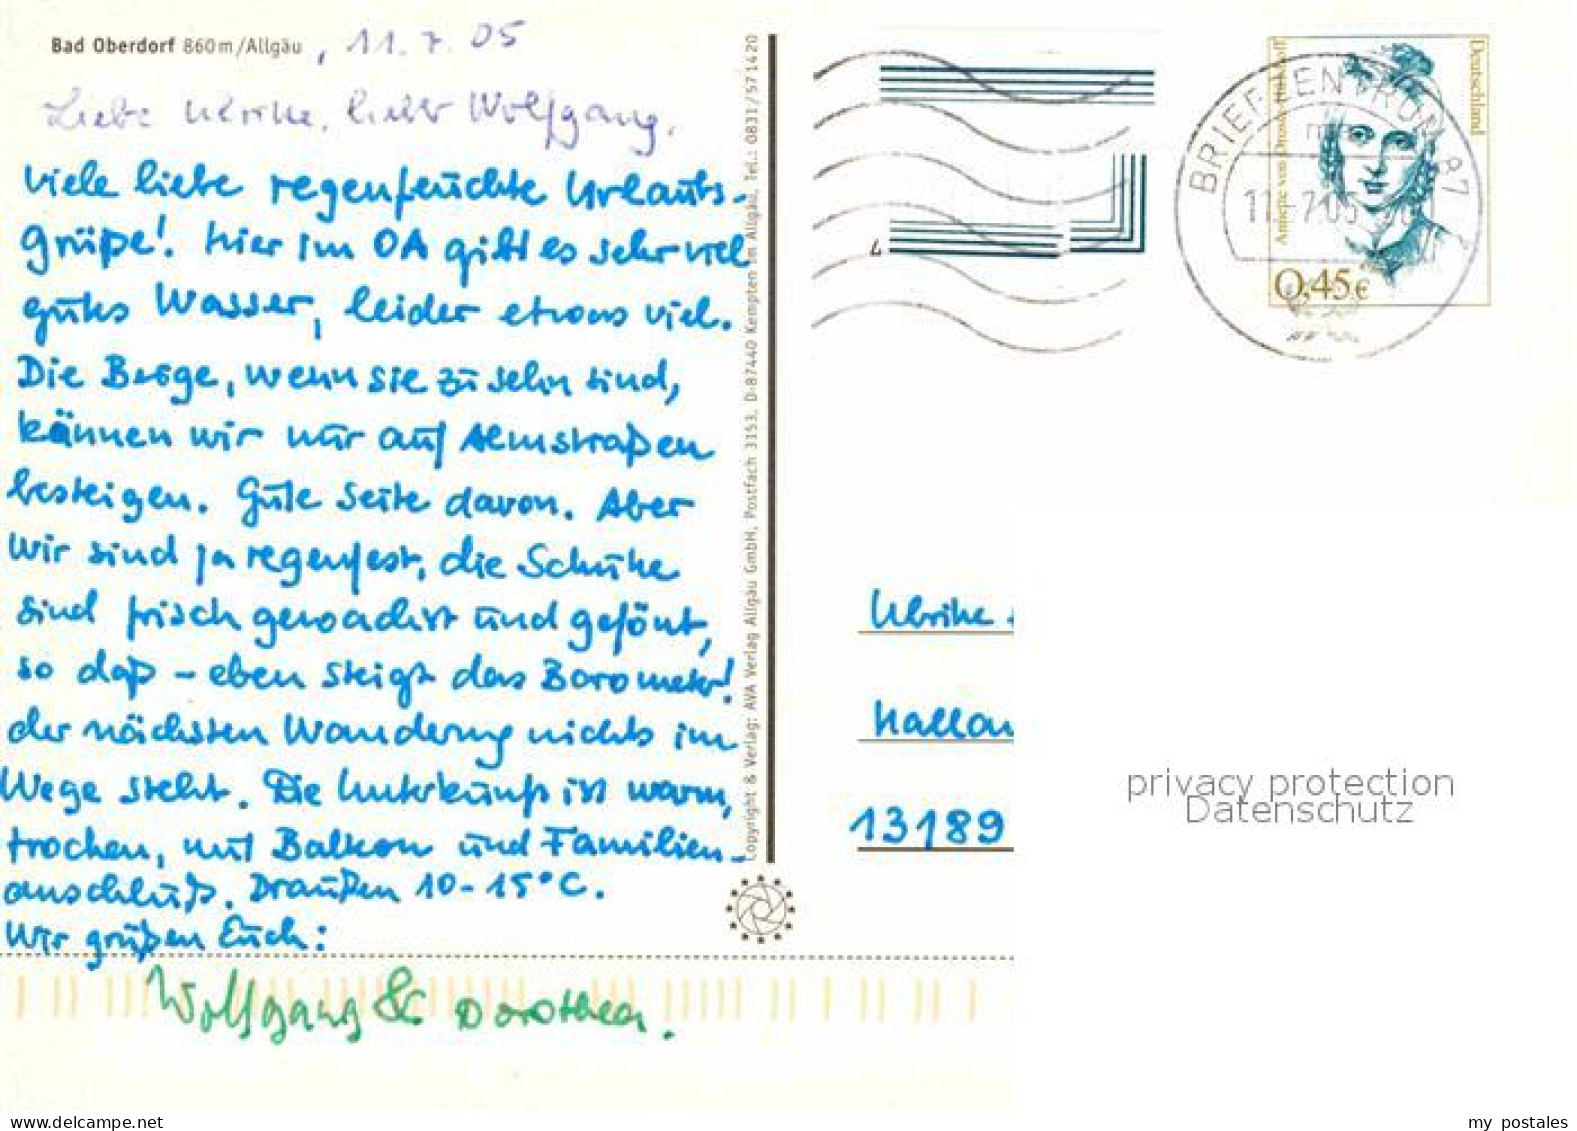 Bad Oberdorf 860m/Allgäu, 11.7.05
Liebe Ulrike, lieber Wolfgang,
viele liebe regenfeuchte Urlaubs-
grüße! Hier im OA gibt es sehr viel
gutes Wasser, leider etwas viel.
Die Berge, wenn sie zu sehn sind,
können wir nur auf Almstraßen
besteigen. Gute Seite davon. Aber
wir sind ja regenfest, die Schuhe
sind frisch gewachst und gefönt,
so daß – eben steigt das Barometer!
der nächsten Wanderung nichts im
Wege steht. Die Unterkunft ist warm,
trocken, mit Balkon und Familien-
anschluß. Draußen 10-15°C.
Wir grüßen Euch:
Wolfgang & Dorothea.
Copyright & Verlag: AVA Verlag Allgäu GmbH, Postfach 3153, D-87440 Kempten im Allgäu, Tel.: 0831/571420
4
BRIEFZENTRUM 87
11.-7.05
Deutschland
Annette von Droste-Hülshoff
0,45€
Ulrike
13189
privacy protection
Datenschutz
my postales